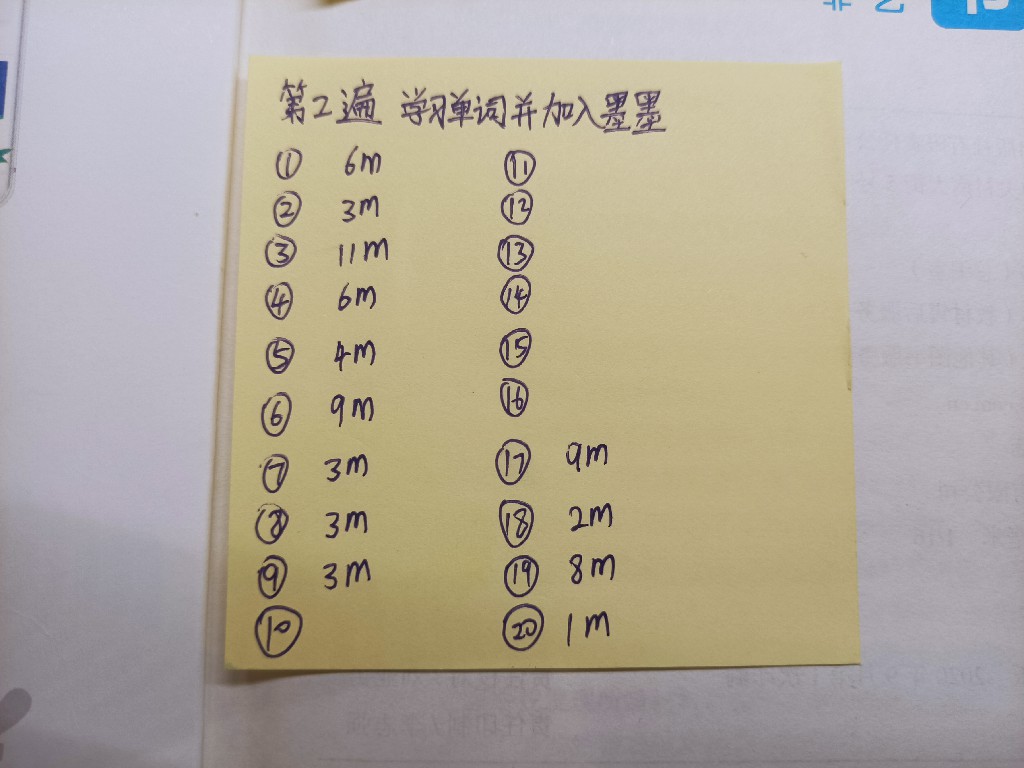 第2遍 学习单词并加入墨墨
① 6m
② 3m
③ 11m
④ 6m
⑤ 4m
⑥ 9m
⑦ 3m
⑧ 3m
⑨ 3m
⑩
⑪
⑫
⑬
⑭
⑮
⑯
⑰ 9m
⑱ 2m
⑲ 8m
⑳ 1m